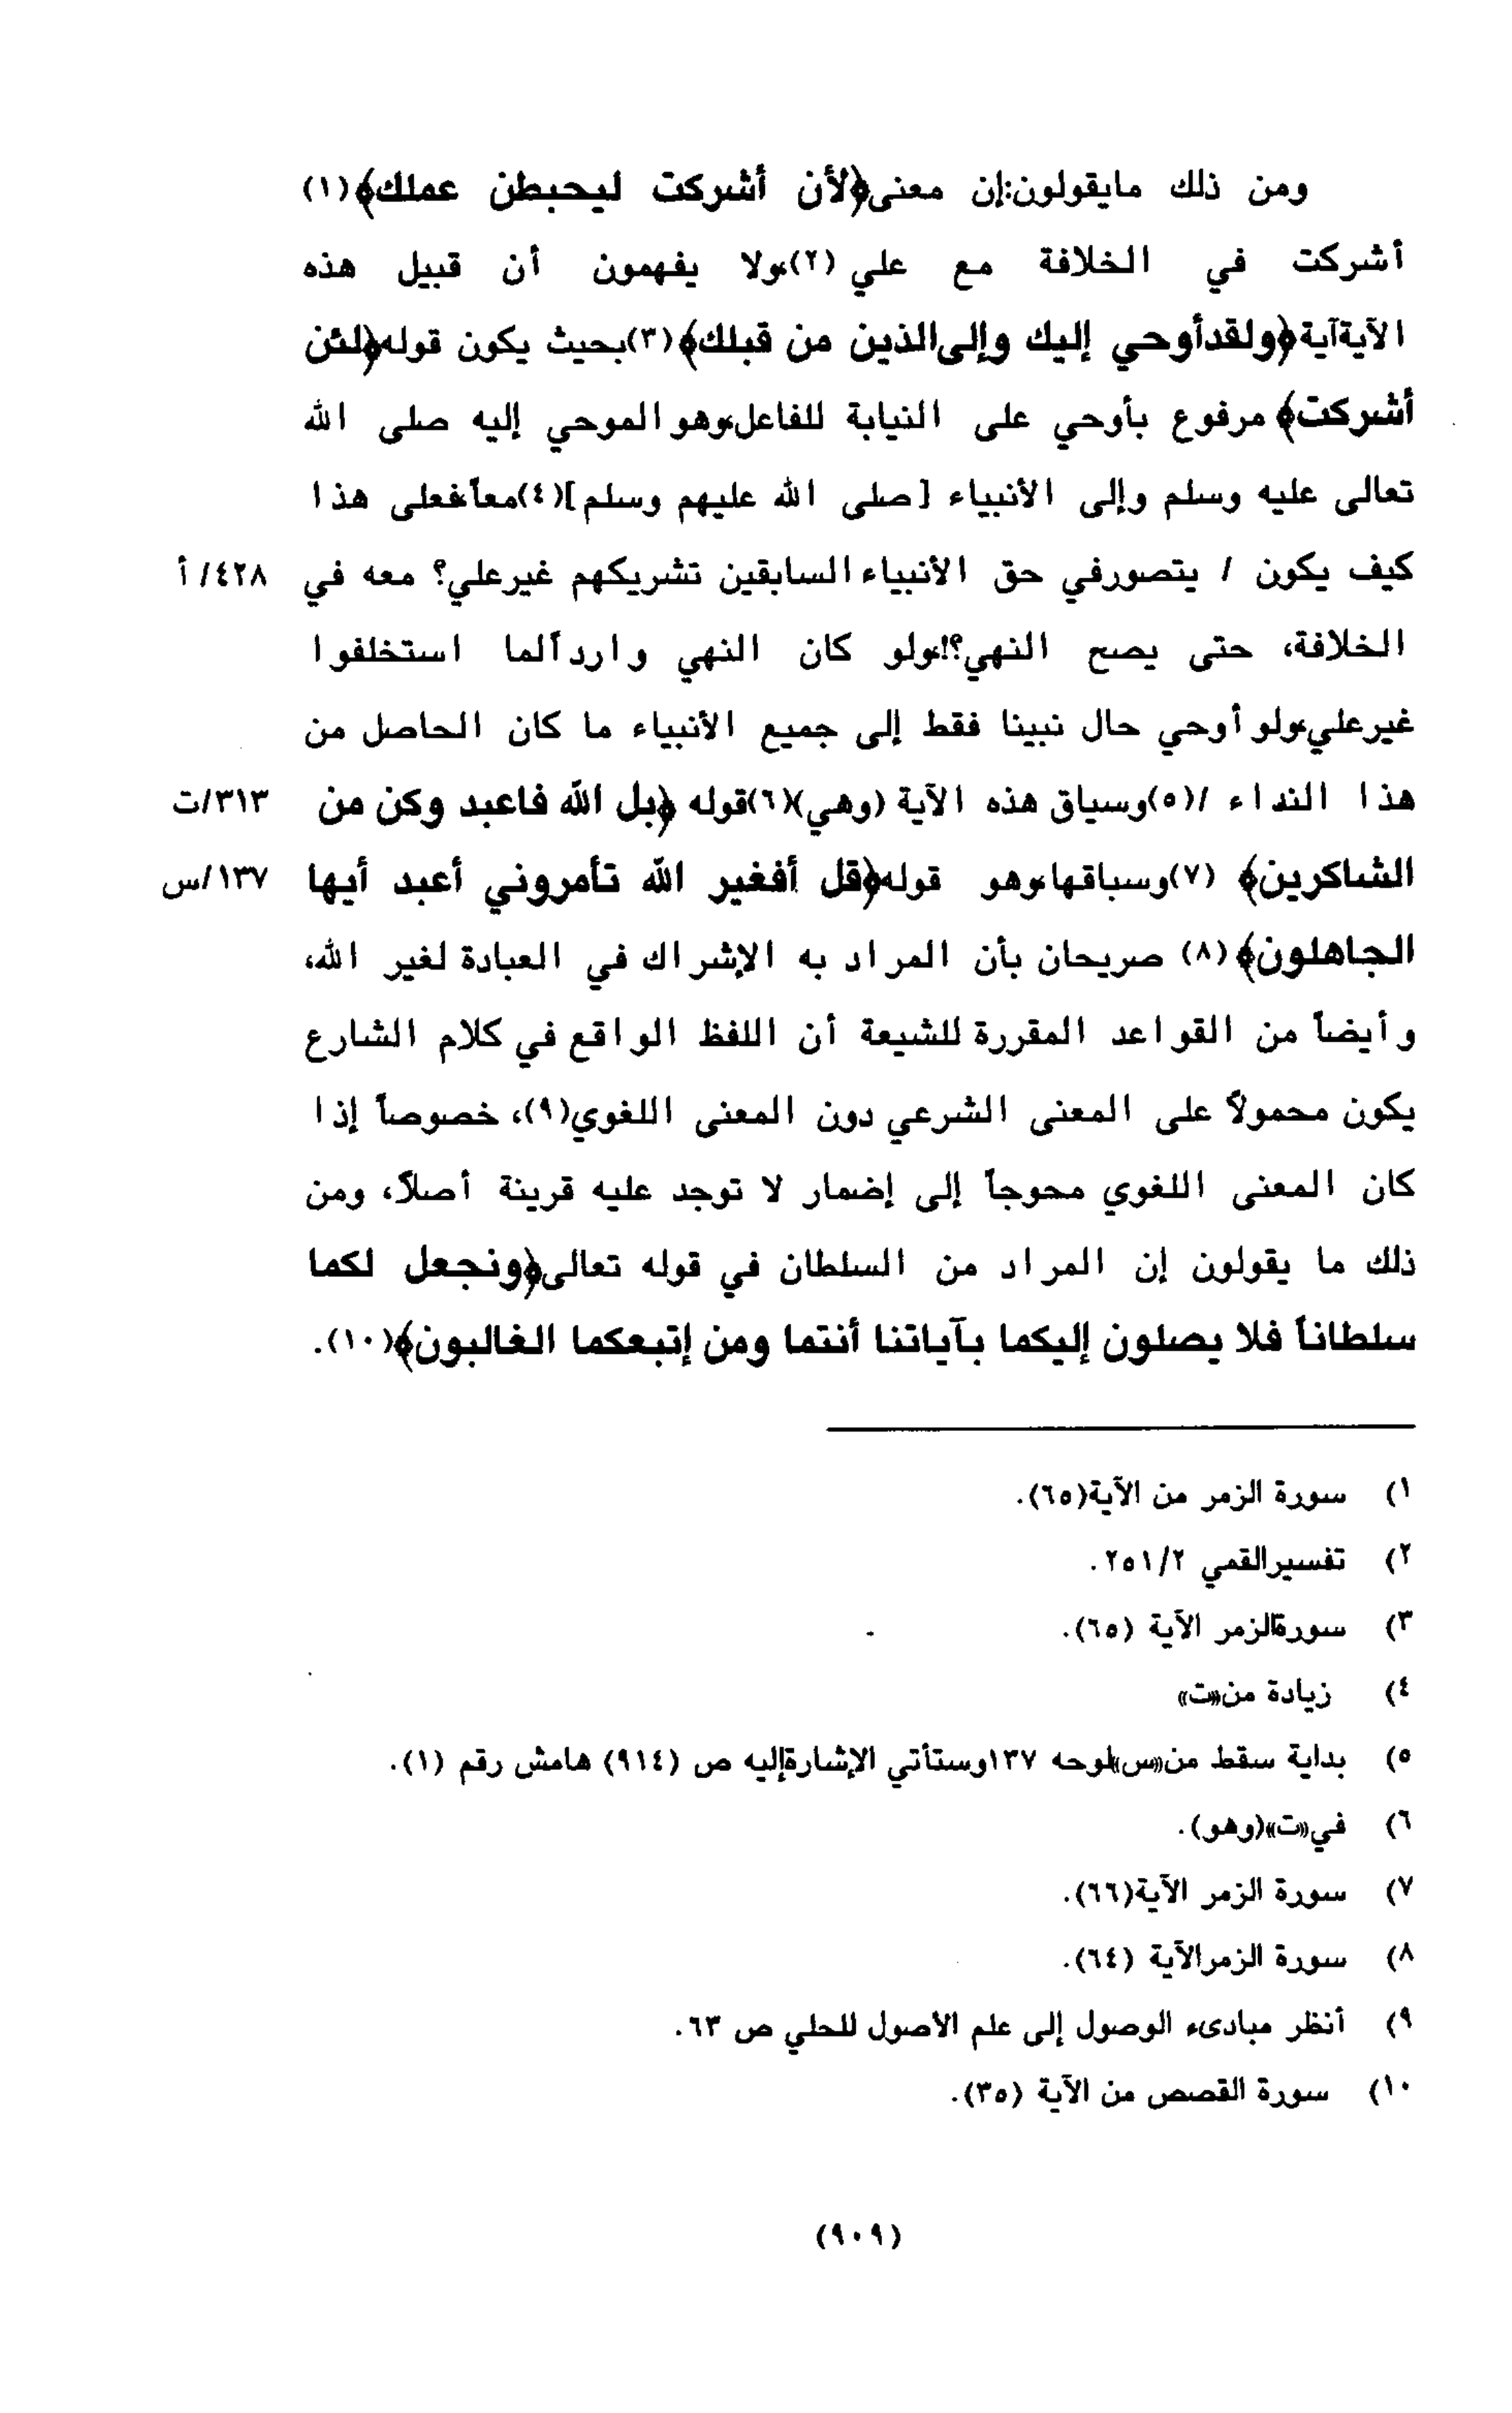 ومن ذلك مايقولون:إن معنى﴿لأن أشركت ليحبطن عملك﴾(١)
أشركت في الخلافة مع علي (٢)،ولا يفهمون أن قبيل هذه
الآيةآية﴿ولقدأوحي إليك وإلى‌الذين من قبلك﴾(٣)بحيث يكون قوله﴿لئن
أشركت﴾ مرفوع بأوحي على النيابة للفاعل،وهو الموحي إليه صلى الله
تعالى عليه وسلم وإلى الأنبياء [صلى الله عليهم وسلم](٤)معاً،فعلى هذا
كيف يكون / يتصورفي حق الأنبياء السابقين تشريكهم غيرعلي؟ معه في ٤٢٨/ أ
الخلافة، حتى يصح النهي؟!،ولو كان النهي وارداً لما استخلفوا
غيرعلي،ولو أوحي حال نبينا فقط إلى جميع الأنبياء ما كان الحاصل من
هذا النداء /(٥)وسياق هذه الآية (وهي)(٦)قوله ﴿بل الله فاعبد وكن من ٣١٣/ت
الشاكرين﴾ (٧)وسباقها،وهو قوله﴿قل أفغير الله تأمروني أعبد أيها ١٣٧/س
الجاهلون﴾(٨) صريحان بأن المراد به الإشراك في العبادة لغير الله،
وأيضاً من القواعد المقررة للشيعة أن اللفظ الواقع في كلام الشارع
يكون محمولاً على المعنى الشرعي دون المعنى اللغوي(٩)، خصوصاً إذا
كان المعنى اللغوي محوجاً إلى إضمار لا توجد عليه قرينة أصلاً، ومن
ذلك ما يقولون إن المراد من السلطان في قوله تعالى﴿ونجعل لكما
سلطاناً فلا يصلون إليكما بآياتنا أنتما ومن إتبعكما الغالبون﴾(١٠).
١) سورة الزمر من الآية(٦٥).
٢) تفسيرالقمي ٢/‏٢٥١.
٣) سورةالزمر الآية (٦٥).
٤) زيادة من«ت»
٥) بداية سقط من«س»لوحه ١٣٧وستأتي الإشارةإليه ص (٩١٤) هامش رقم (١).
٦) في«ت»(وهو).
٧) سورة الزمر الآية(٦٦).
٨) سورة الزمرالآية (٦٤).
٩) أنظر مبادىء الوصول إلى علم الاصول للحلي ص ٦٣.
١٠) سورة القصص من الآية (٣٥).
(٩٠٩)